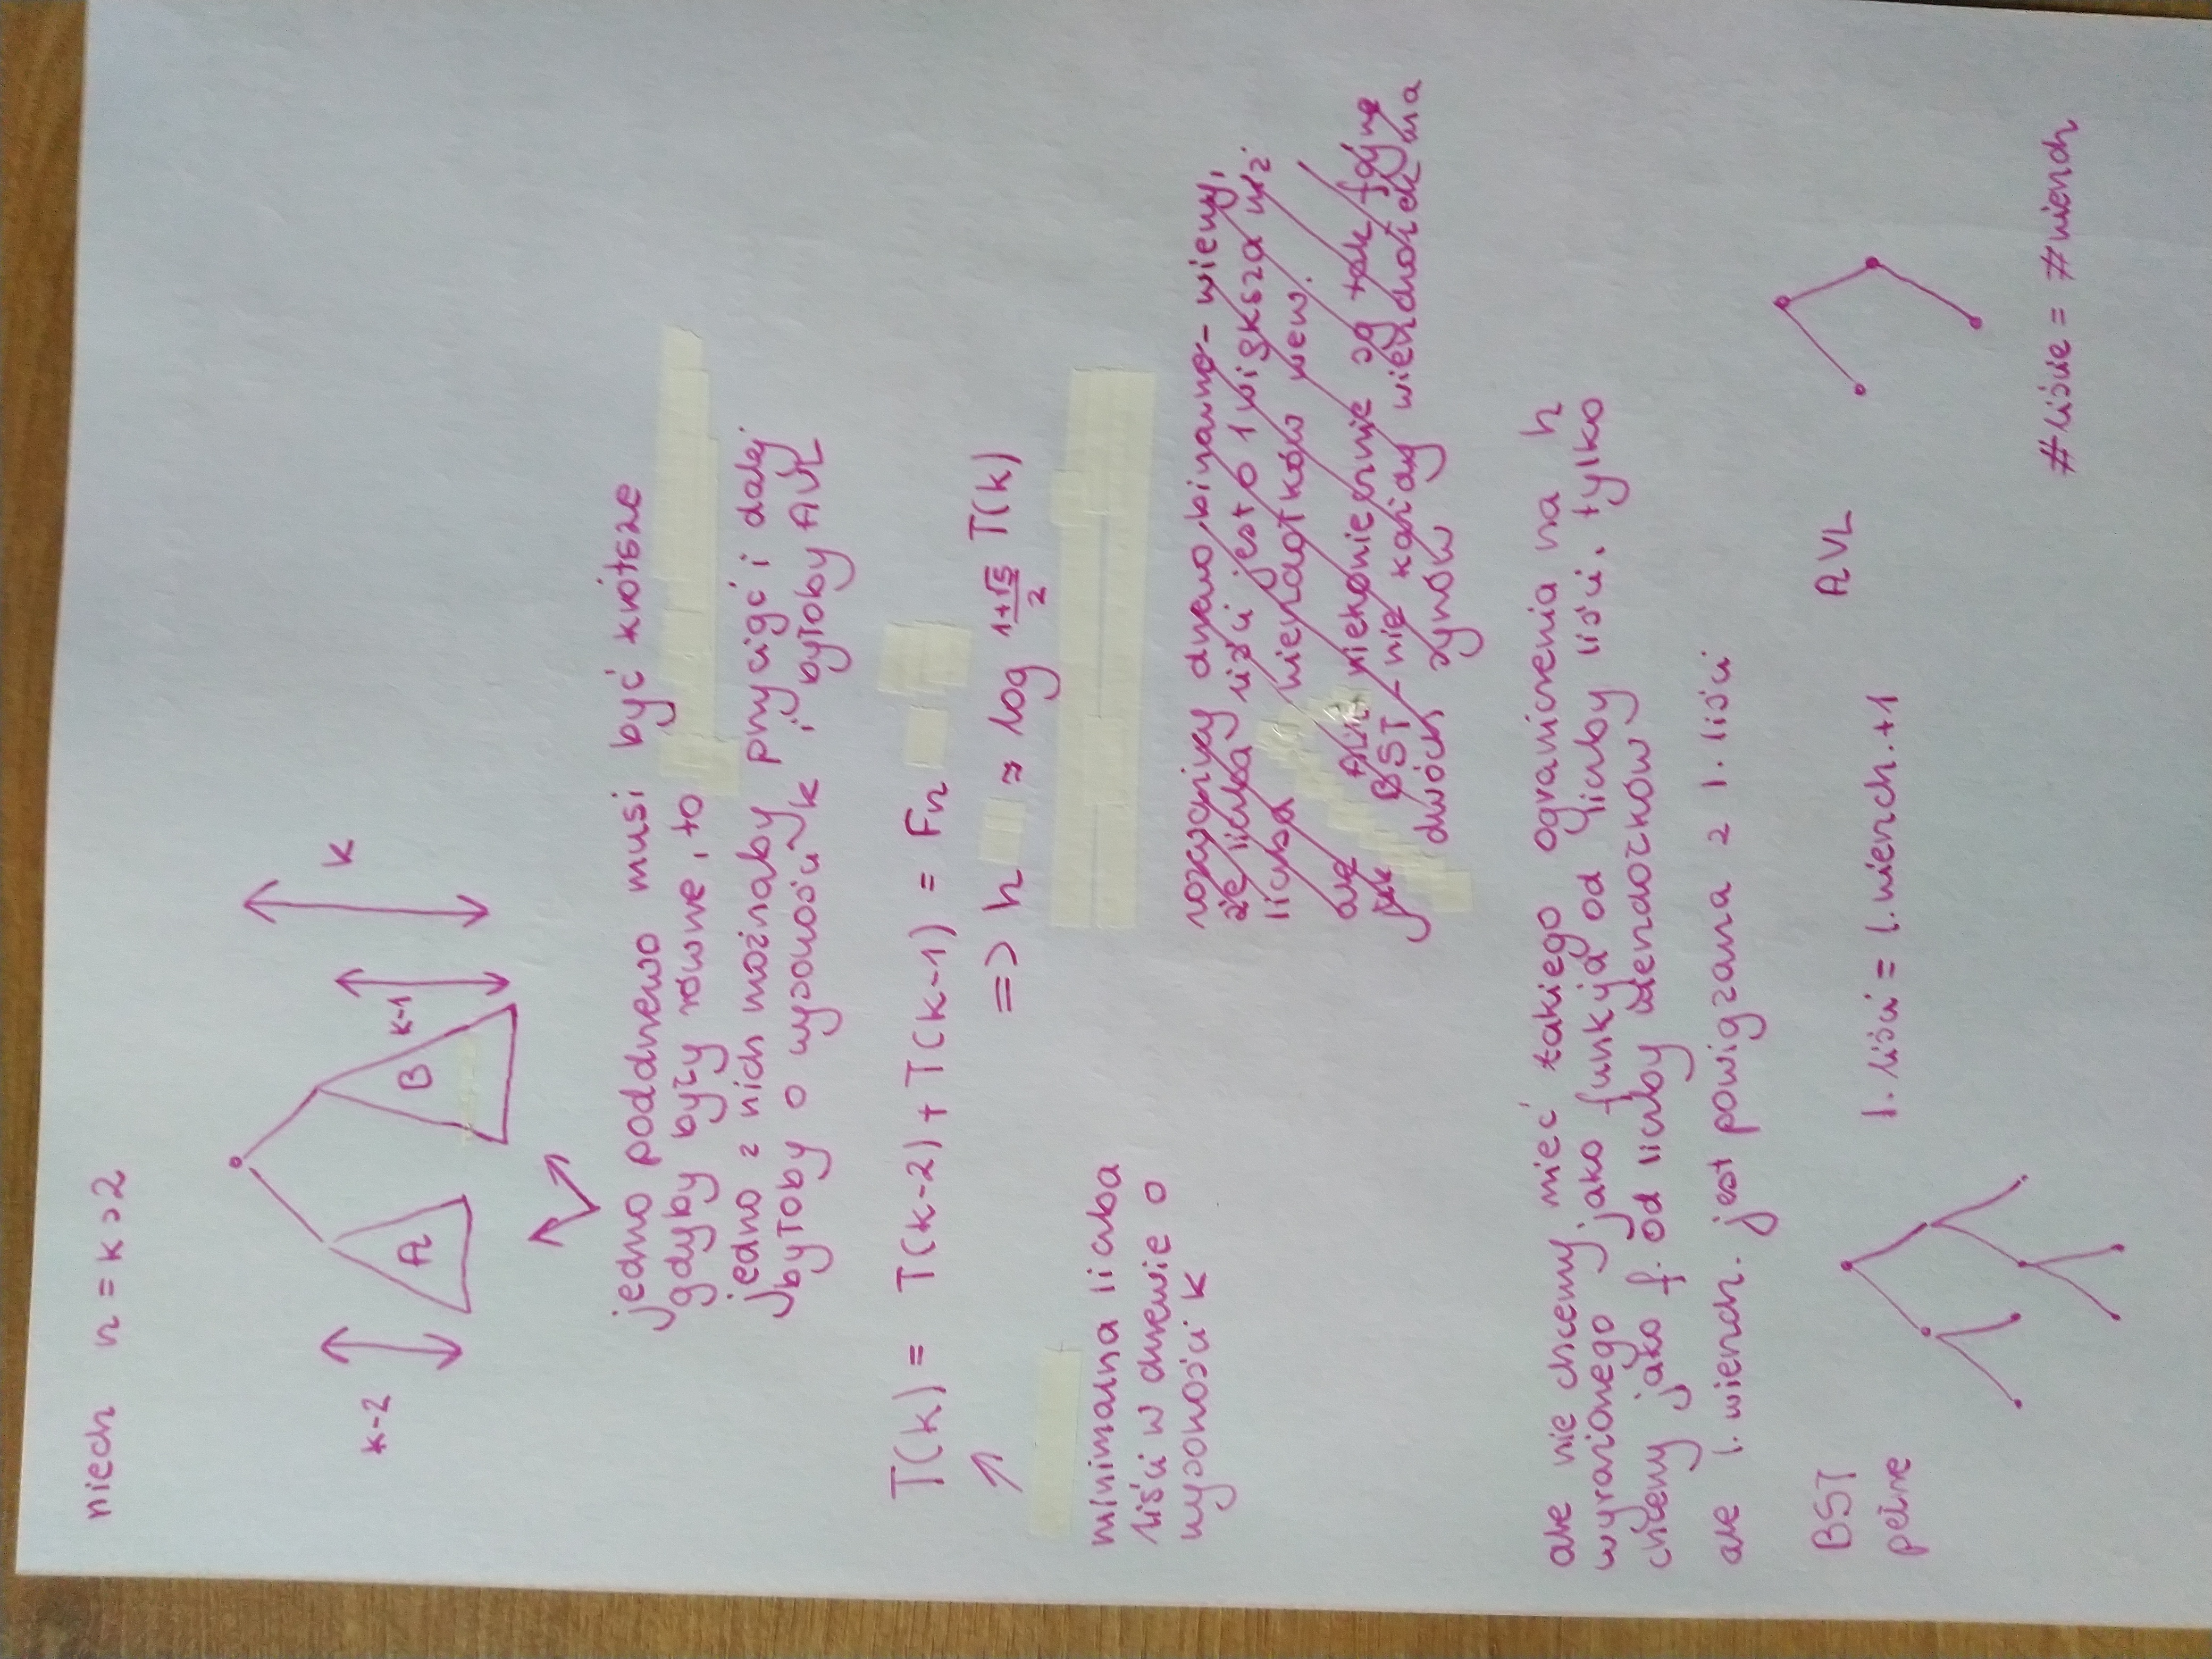 niech n = k > 2
k-2
A
B
k-1
k
jedno poddrzewo musi być krótsze
gdyby były równe, to
jedno z nich możnaby przyciąć i dalej
byłoby o wysokości k i byłoby AVL
T(k) = T(k-2) + T(k-1) = Fn
=> h ≈ log 1+√5/2 T(k)
minimalna liczba
liści w drzewie o
wysokości k
rozważmy drzewo binarne - wiemy,
że liczba liści jest o 1 większa niż
liczba wierzchołków wew.
ale AVL niekoniecznie są tak fajne
jak BST - nie każdy wierzchołek ma
dwóch synów
ale nie chcemy mieć takiego ograniczenia na h
wyrażonego jako funkcja od liczby liści, tylko
chcemy jako f. od liczby wierzchołków
ale l. wierzch. jest powiązana z l. liści
BST
pełne
l. liści = l. wierzch. +1
AVL
#liście = #wierzch